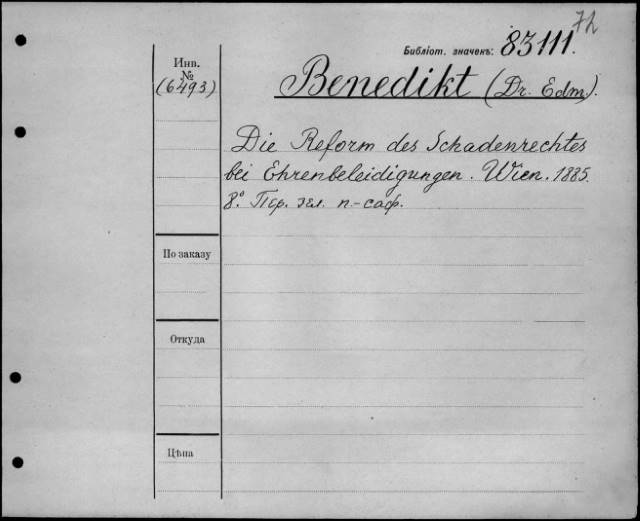 72
Библіот. значекъ: 83111.
Инв.
№
(6493)
Benedikt (Dr. Edm.).
Die Reform des Schadenrechtes
bei Ehrenbeleidigungen. Wien. 1885.
8° Пер. зел. п-саф.
По заказу
Откуда
Цѣна